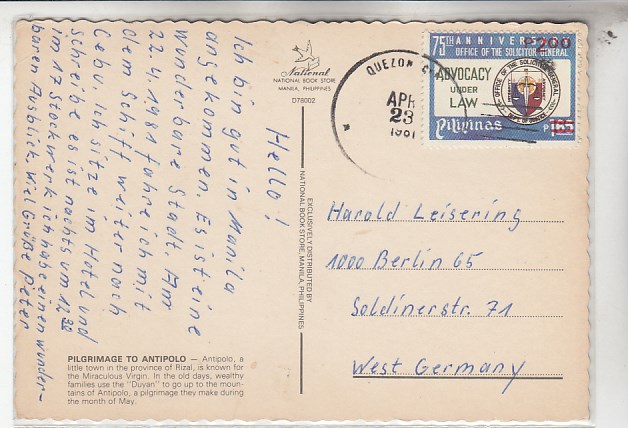 Hello!
Ich bin gut in Manila
angekommen. Es ist eine
wunderbare Stadt. Am
22.4.1981 fahre ich mit
dem Schiff weiter nach
Cebu. Ich sitze im Hotel und
schreibe es ist nachts um 12.30
im 17 Stockwerk ich habe einen wunder-
baren Ausblick. Viel Grüße Peter
National
NATIONAL BOOK STORE
MANILA, PHILIPPINES
D78002
EXCLUSIVELY DISTRIBUTED BY
NATIONAL BOOK STORE, MANILA, PHILIPPINES
PILGRIMAGE TO ANTIPOLO — Antipolo, a
little town in the province of Rizal, is known for
the Miraculous Virgin. In the old days, wealthy
families use the "Duyan" to go up to the moun-
tains of Antipolo, a pilgrimage they make during
the month of May.
QUEZON
APR
23
1981
75TH ANNIVERS
2.00
OFFICE OF THE SOLICITOR GENERAL
ADVOCACY
UNDER
LAW
OFFICE OF THE SOLICITOR GENERAL
Pilipinas
Harald Leisering
1000 Berlin 65
Soldinerstr. 71
West Germany